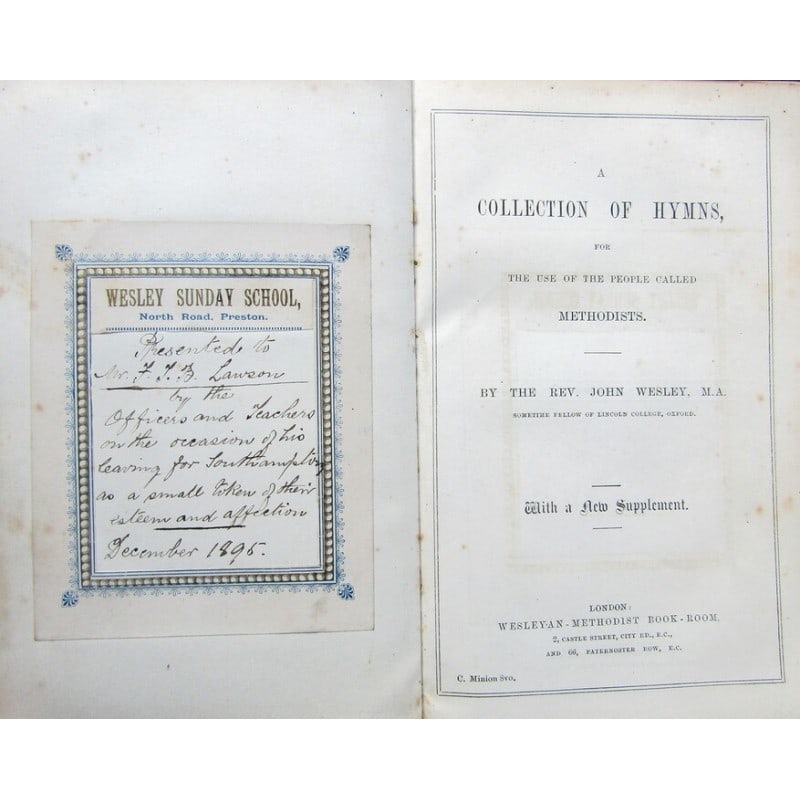 WESLEY SUNDAY SCHOOL,
North Road, Preston.
Presented to
Mr. F. J. B. Lawson
by the
Officers and Teachers
on the occasion of his
leaving for Southampton
as a small token of their
esteem and affection
December 1895.
A
COLLECTION OF HYMNS,
FOR
THE USE OF THE PEOPLE CALLED
METHODISTS.
BY THE REV. JOHN WESLEY, M.A.
SOMETIME FELLOW OF LINCOLN COLLEGE, OXFORD.
With a New Supplement.
LONDON:
WESLEYAN-METHODIST BOOK-ROOM,
2, CASTLE STREET, CITY RD., E.C.,
AND 66, PATERNOSTER ROW, E.C.
C. Minion 8vo.